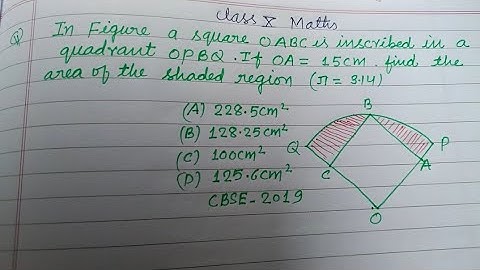 Class X Maths
Q In Figure a square OABC is inscribed in a
quadrant OPBQ. If OA = 15cm. find the
area of the shaded region (π = 3.14)
(A) 228.5cm²
(B) 128.25cm²
(C) 100cm²
(D) 125.6cm²
CBSE-2019
B
Q
P
C
A
O